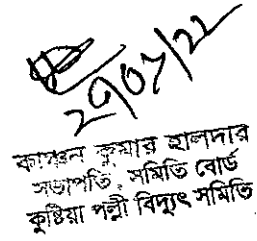 ২৭/০৭/২২
কাঞ্চন কুমার হালদার
সভাপতি, সমিতি বোর্ড
কুষ্টিয়া পল্লী বিদ্যুৎ সমিতি